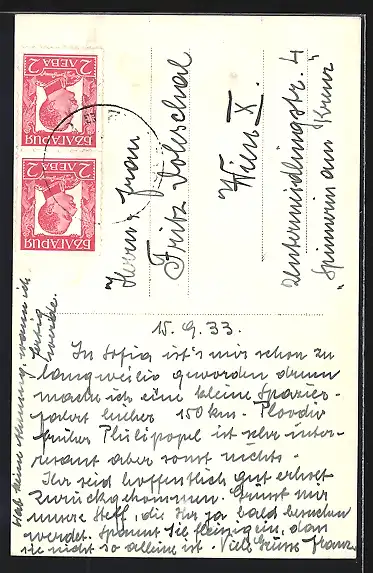 БЪЛГАРИЯ
2 ЛЕВА
БЪЛГАРИЯ
2 ЛЕВА
Herrn u. Frau
Fritz
Wien X.
Untermeidlingstr. 4
"Spinnerin am Kreuz"
15.9.33.
In Sofia ist's mir schon zu
langweilig geworden drum
mache ich eine kleine Spazier-
fahrt hieher 150 km. Plovdiv
früher Philipopel ist sehr inter-
essant aber sonst nichts.
Ihr seid hoffentlich gut erholt
zurückgekommen. Grüsst mir
unsere Steff, die Ihr ja bald besuchen
werdet. Spannt sie fleissig ein, dan
sie nicht so alleine ist. Viele Grüsse Franz
Hab keine Ahnung, wann ich
fertig
werde.